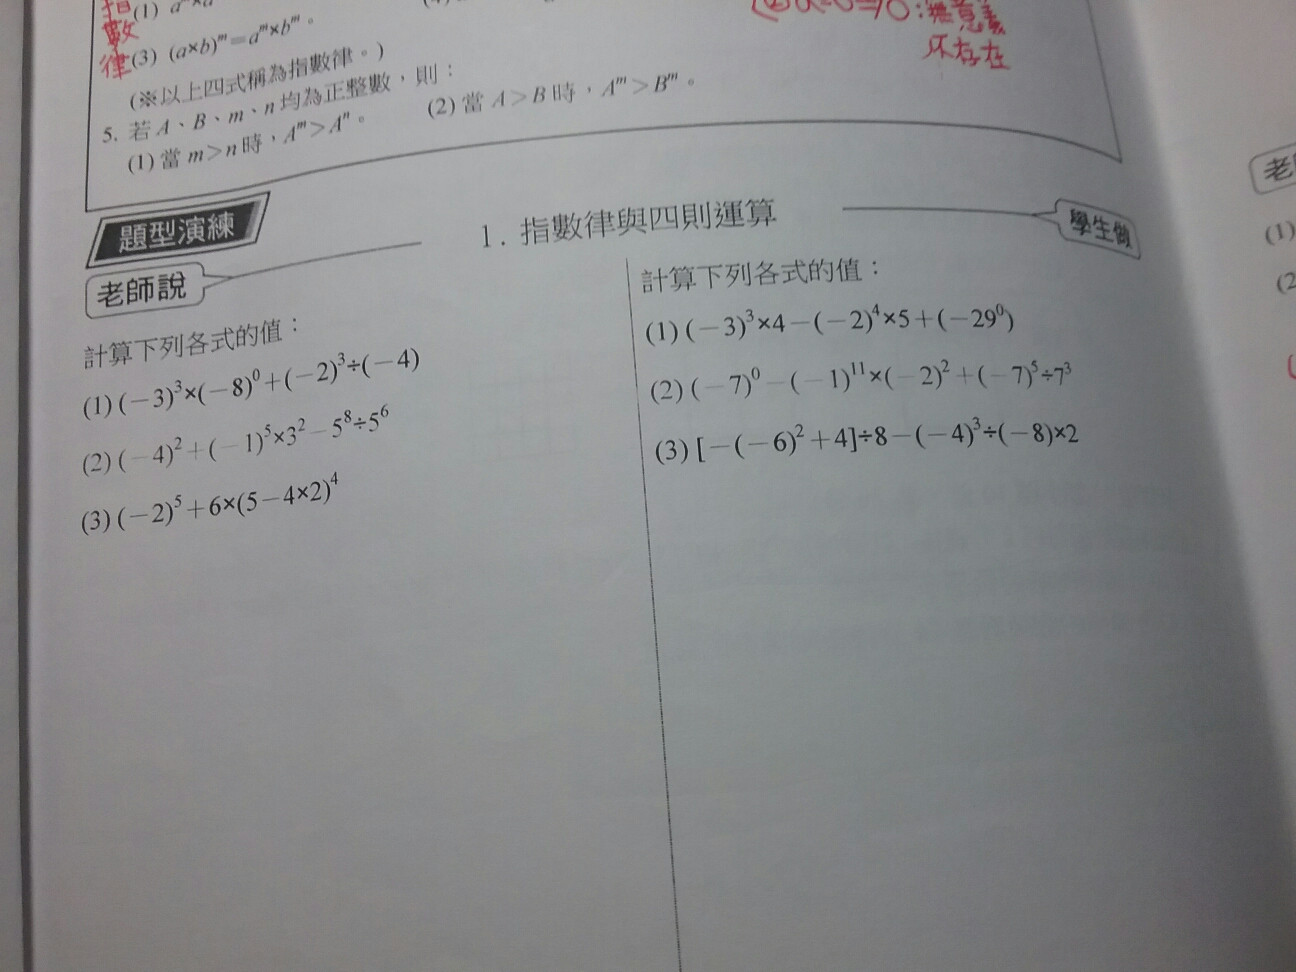 指數律
(3) (a×b)ᵐ=aᵐ×bᵐ。
無意義
不存在
(※以上四式稱為指數律。)
5. 若 A、B、m、n 均為正整數，則：
(1) 當 m>n 時，Aᵐ>Aⁿ。 (2) 當 A>B 時，Aᵐ>Bᵐ。
題型演練
1. 指數律與四則運算
老師說
計算下列各式的值：
(1) (−3)³×(−8)⁰+(−2)³÷(−4)
(2) (−4)²+(−1)⁵×3²−5⁸÷5⁶
(3) (−2)⁵+6×(5−4×2)⁴
學生做
計算下列各式的值：
(1) (−3)³×4−(−2)⁴×5+(−29⁰)
(2) (−7)⁰−(−1)¹¹×(−2)²+(−7)⁵÷7³
(3) [−(−6)²+4]÷8−(−4)³÷(−8)×2